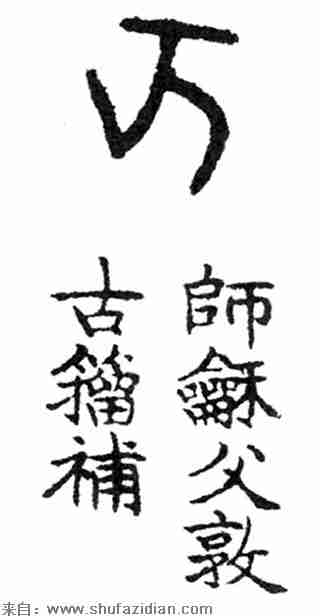 師龢父敦
古籀補
来自：www.shufazidian.com